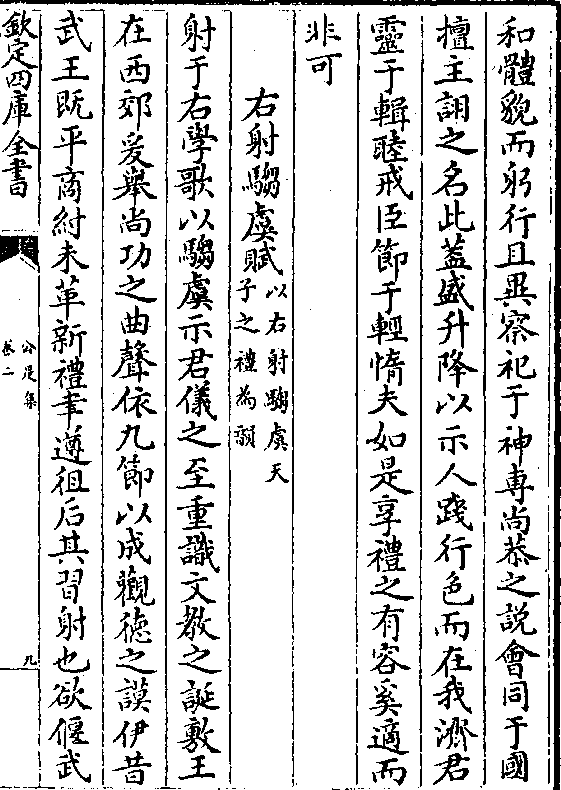 和體貌而躬行且異察祀于神専尚恭之說會同于國
擅主詡之名此葢盛升降以示人踐行色而在我濟君
靈于輯睦戒臣節于輕惰夫如是享禮之有容奚適而
非可
右射騶虞賦以右射騶虞天子之禮為韻
射于右學歌以騶虞示君儀之至重識文教之誕敷王
在西郊爰舉尚功之曲聲依九節以成觀徳之謨伊昔
武王既平商紂未革新禮聿遵徂后其習射也欲偃武
欽定四庫全書
公是集
卷二
九